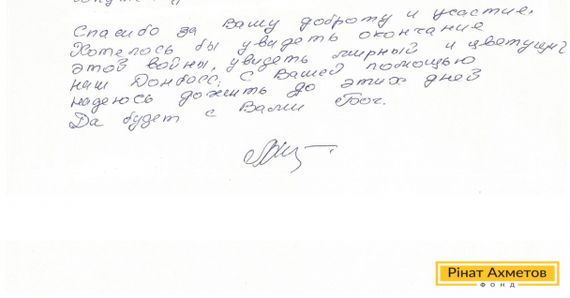 Спасибо за Вашу доброту и участие.
Хотелось бы увидеть окончание
этой войны, увидеть мирный и цветущий
наш Донбасс. С Вашей помощью
надеюсь дожить до этих дней
Да будет с Вами Бог.
Рінат Ахметов
ФОНД